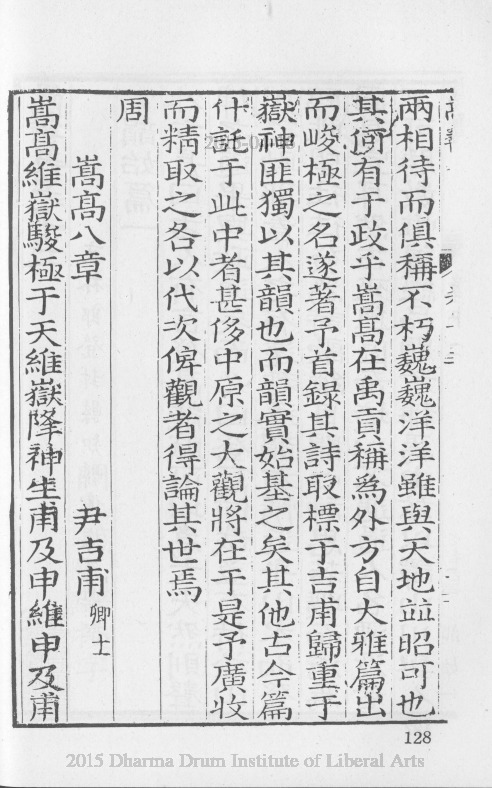 兩相待而俱稱不朽巍巍洋洋雖與天地竝昭可也
其何有于政乎嵩高在禹貢稱爲外方自大雅篇出
而峻極之名遂著予首錄其詩取標于吉甫歸重于
嶽神匪獨以其韻也而韻實始基之矣其他古今篇
什託于此中者甚侈中原之大觀將在于是予廣收
而精取之各以代次俾觀者得論其世焉
周
嵩高八章
尹吉甫 卿士
嵩高維嶽駿極于天維嶽降神生甫及申維申及甫
128
2015 Dharma Drum Institute of Liberal Arts